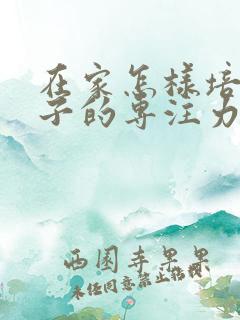 在家怎样培
子的专注力
西园寺果果
未经同意禁止转载